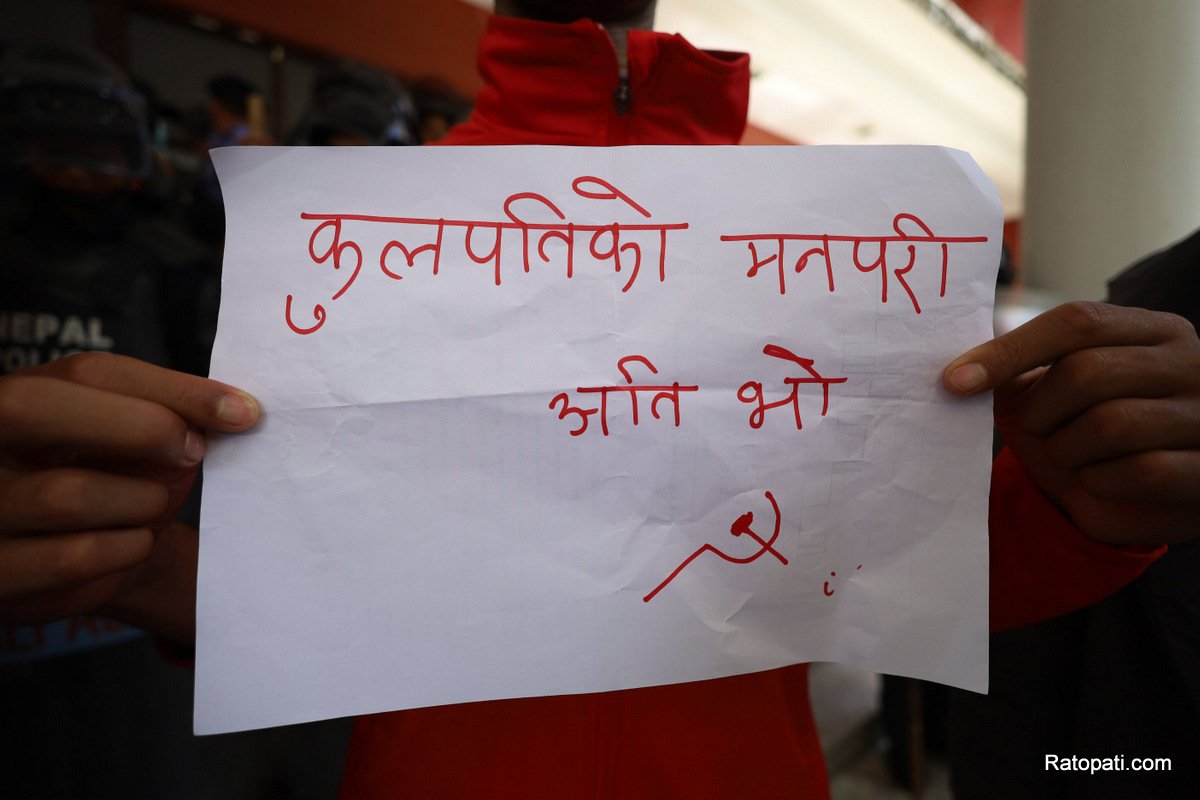 कुलपतिको मनपरी
अति भो
NEPAL
Ratopati.com